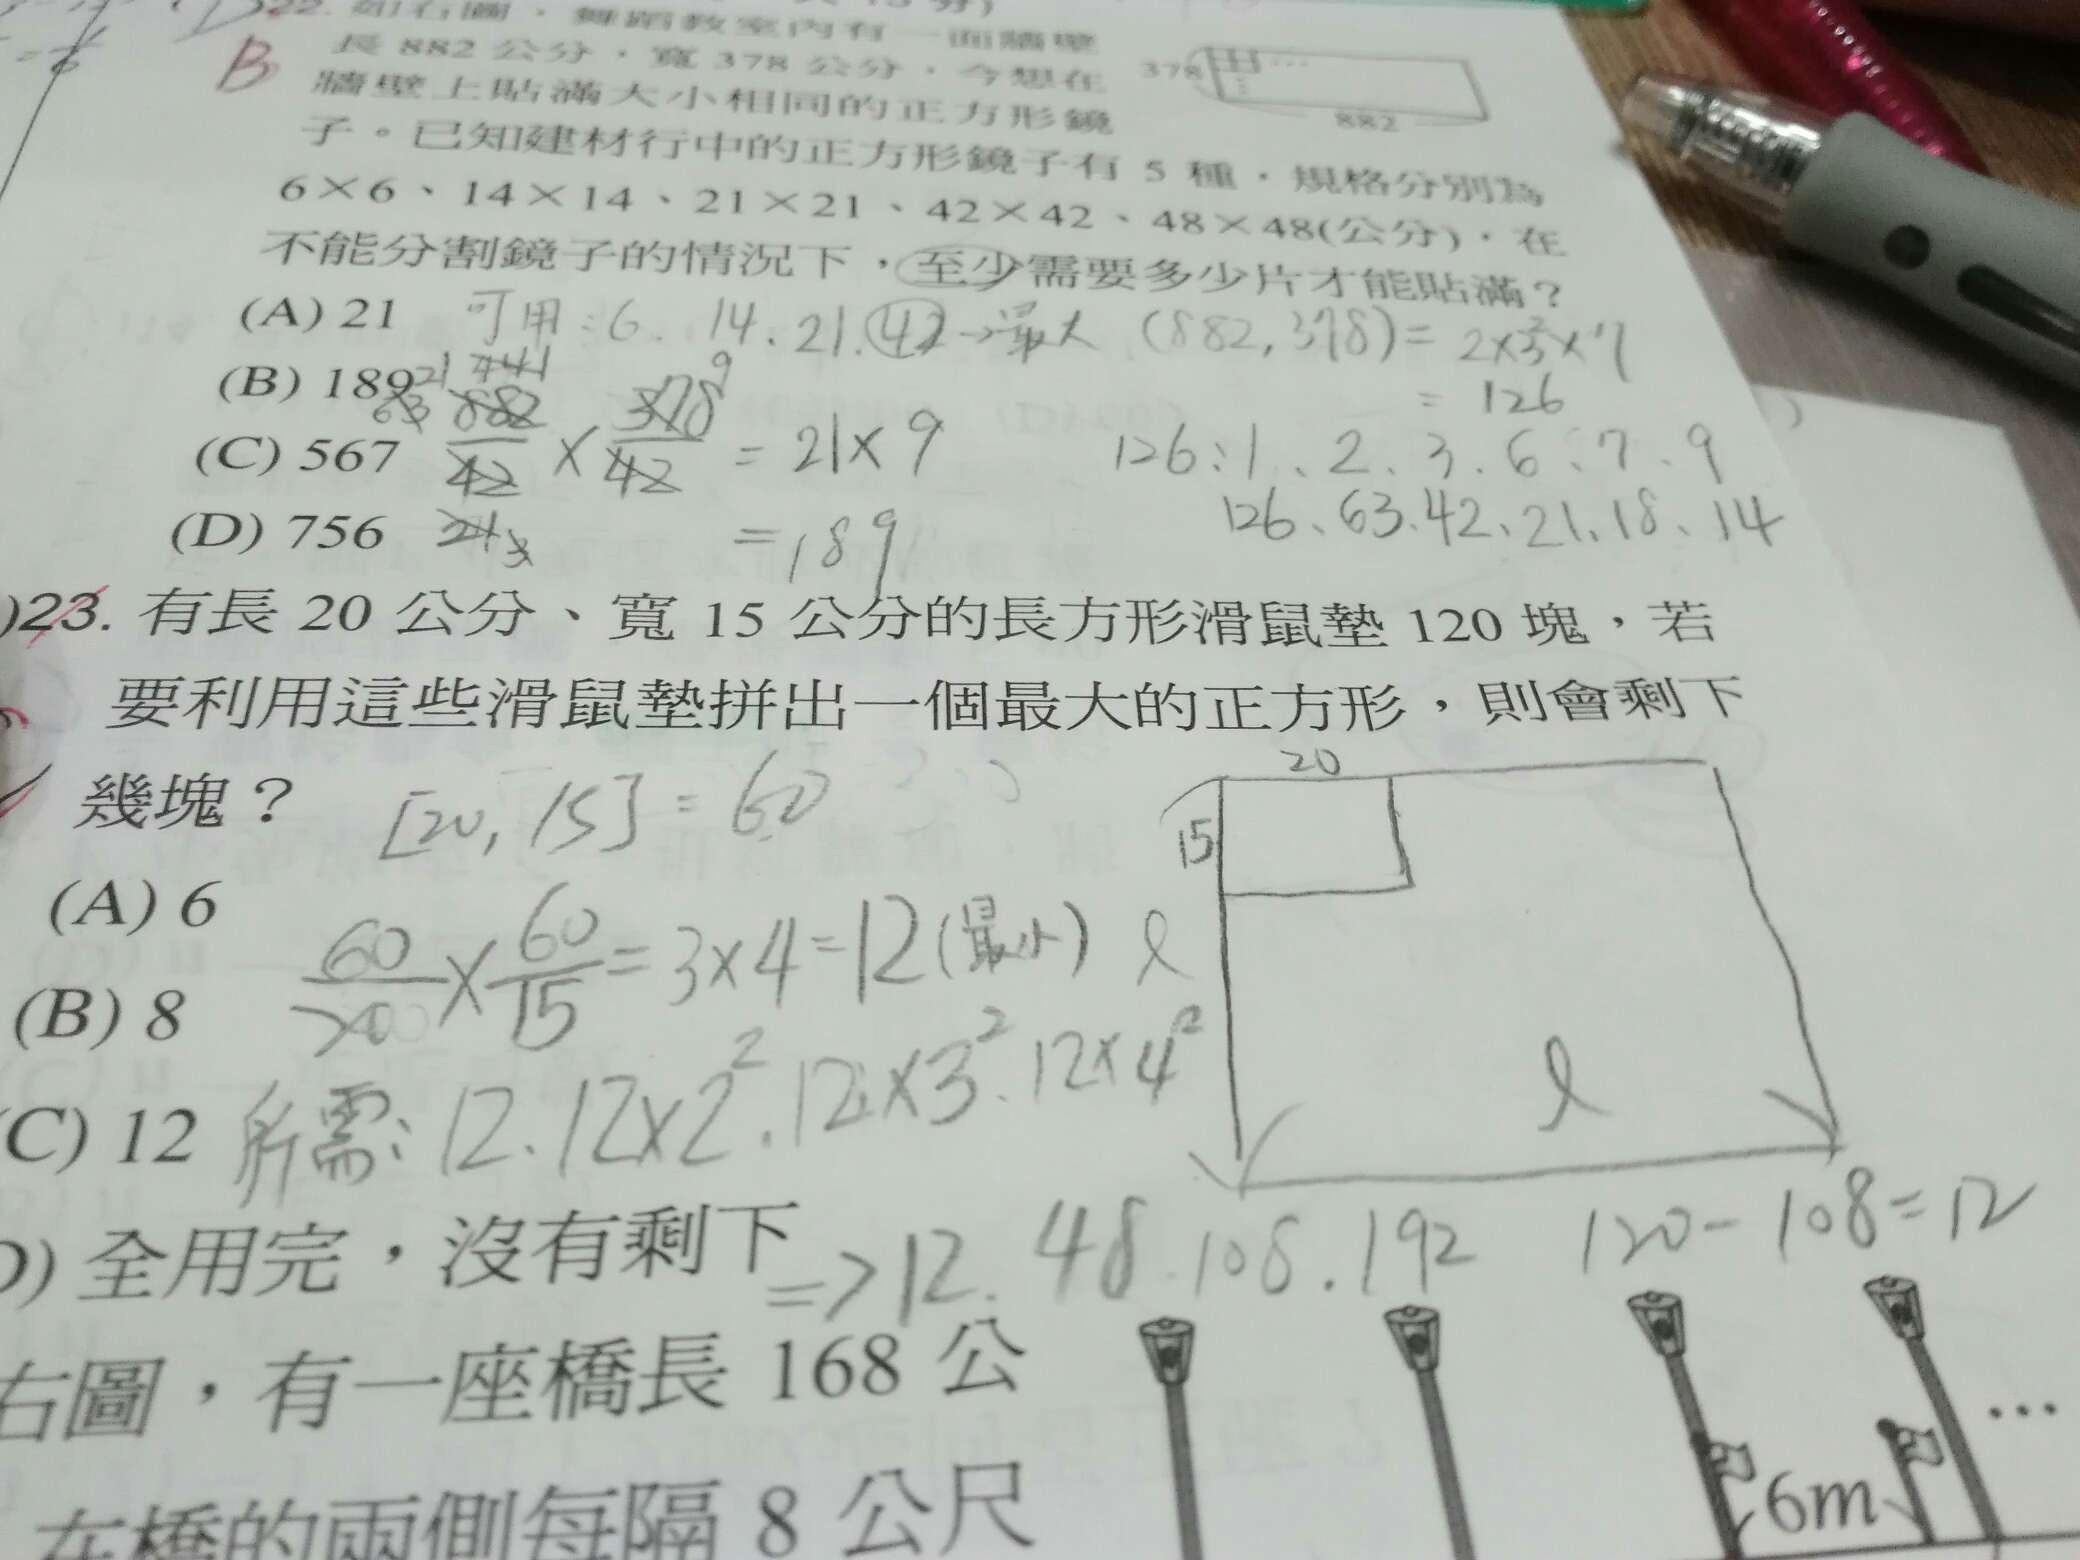 22. 如右圖，舞蹈教室內有一面牆壁
B
長 882 公分，寬 378 公分，今想在
378
882
牆壁上貼滿大小相同的正方形鏡
子。已知建材行中的正方形鏡子有 5 種，規格分別為
6×6、14×14、21×21、42×42、48×48(公分)，在
不能分割鏡子的情況下，至少需要多少片才能貼滿？
(A) 21
可用：6. 14. 21. 42→最大 (882,378)= 2×3²×7
= 126
(B) 189
21 441 9
63 882 × 378 = 21×9
42 42
(C) 567
126：1、2、3、6、7、9
126、63、42、21、18、14
(D) 756
21 3
=189
23. 有長 20 公分、寬 15 公分的長方形滑鼠墊 120 塊，若
要利用這些滑鼠墊拼出一個最大的正方形，則會剩下
幾塊？
[20, 15] = 60
20
15
(A) 6
60/20 × 60/15 = 3×4=12(最小)
ℓ
(B) 8
ℓ
(C) 12
所需：12. 12×2². 12×3². 12×4²
D) 全用完，沒有剩下
=> 12. 48. 108. 192
120-108=12
右圖，有一座橋長 168 公
在橋的兩側每隔 8 公尺
6m
...